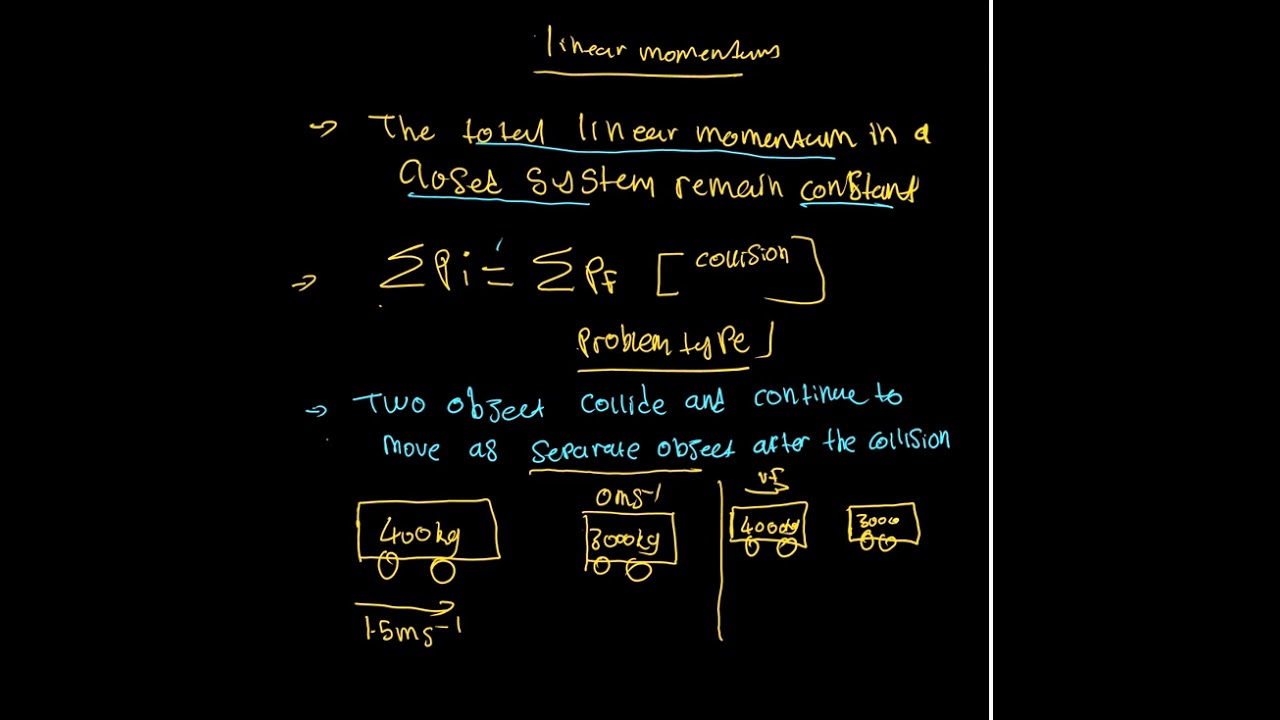 linear momentum
→ The total linear momentum in a
closed system remain constant
→ ΣPi = ΣPf [collision]
Problem type 1
→ Two object collide and continue to
move as separate object after the collision
0ms⁻¹ vf
400kg 3000kg 4000kg 3000
1.5ms⁻¹